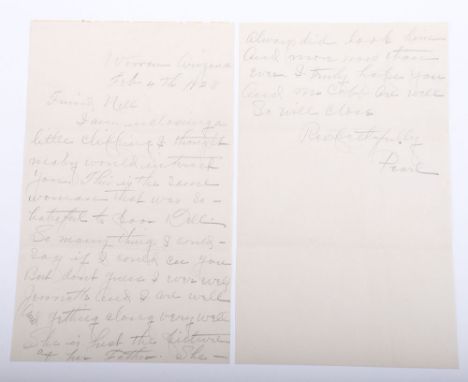 Winona Arizona
Feb 4th 1928
Friend Nell
I am inclosing a
little clipping I thought
maby would intrust
you. This is the same
woman that was so
hateful to poor Belle
So many thing I could
say if I could see you
But dont guess I ever will
and I are well
& getting along very well
She is just the picture
of her Father. She
always did look him
And more now than
ever I truly hope you
and Mr are well
So will close
Respectfully
Pearl